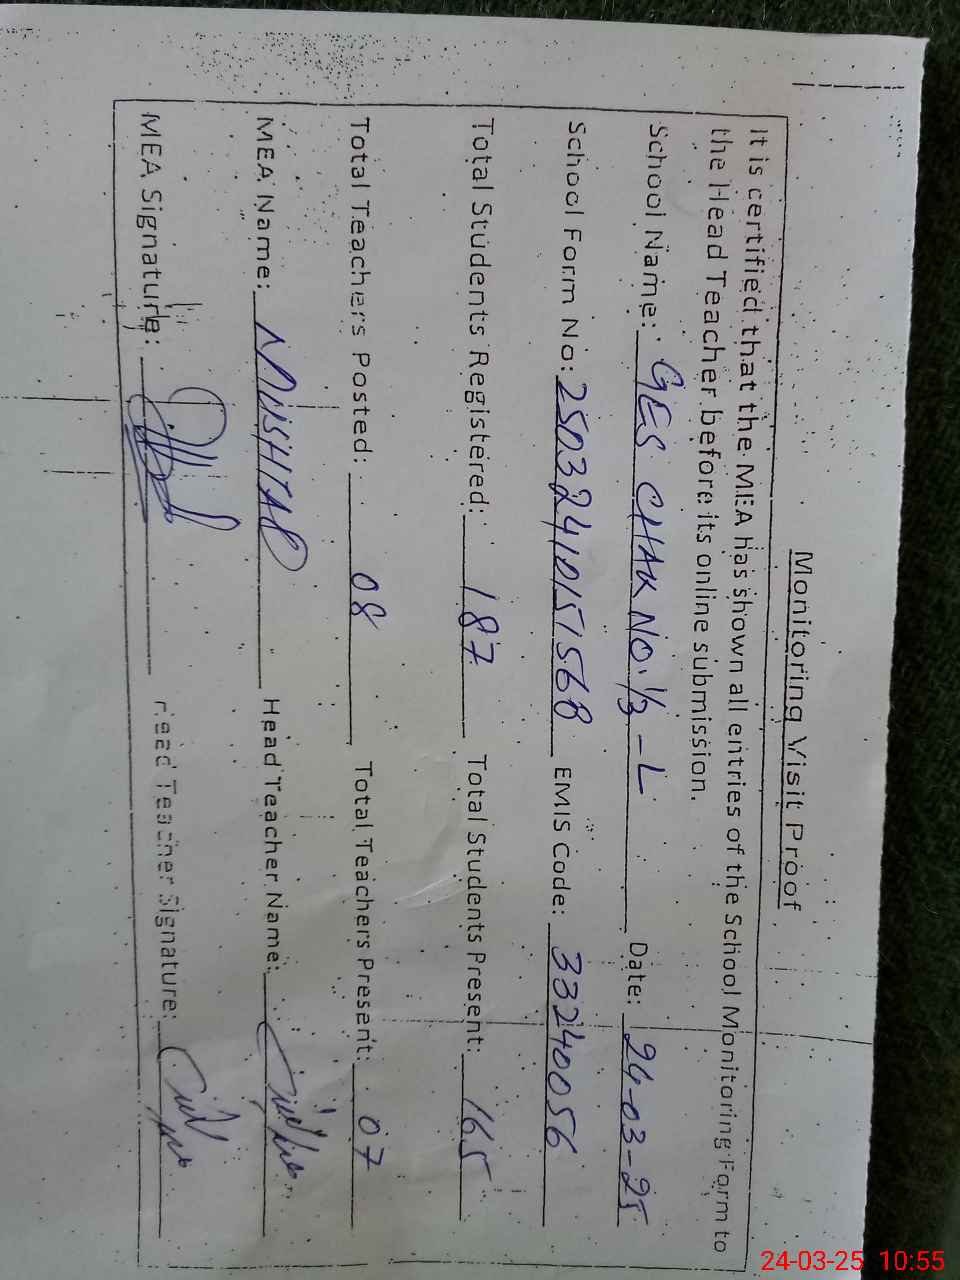 Monitoring Visit Proof
It is certified that the MEA has shown all entries of the School Monitoring Form to
the Head Teacher before its online submission.
School Name: GES CHAK NO. 1/3-L Date: 24-03-25
School Form No: 2503241015156B EMIS Code: 33240056
Total Students Registered: 187 Total Students Present: 165
Total Teachers Posted: 08 Total Teachers Present: 07
MEA Name: MUSHTAQ Head Teacher Name:
MEA Signature: Head Teacher Signature:
24-03-25 10:55